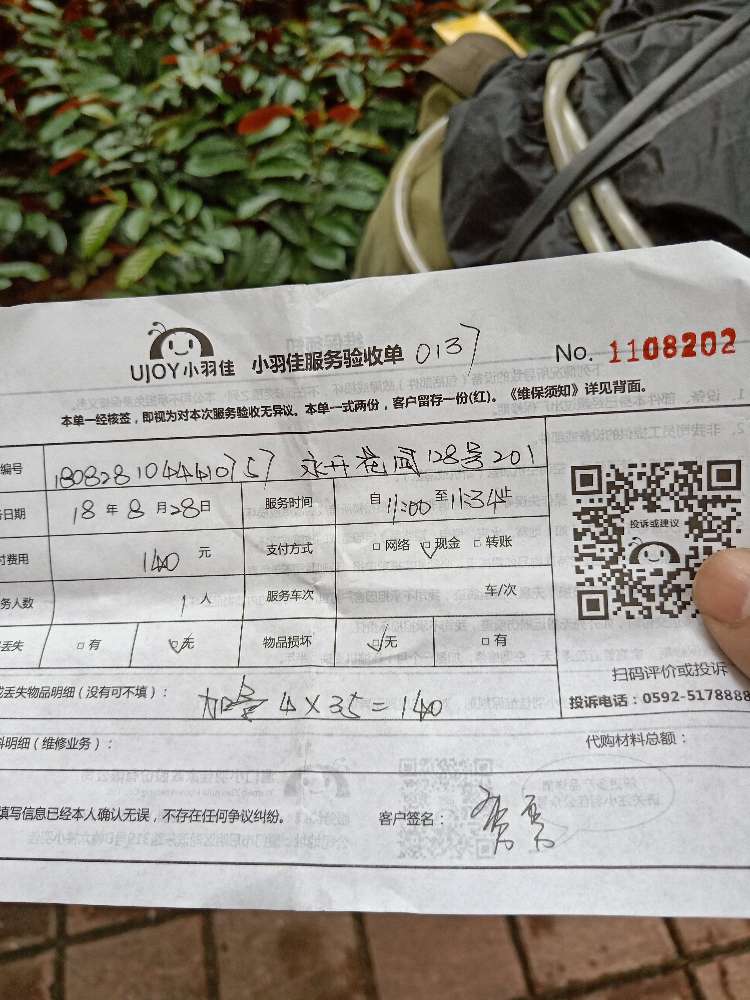 UJOY小羽佳 小羽佳服务验收单 0137 No. 1108202
本单一经核签，即视为对本次服务验收无异议。本单一式两份，客户留存一份(红)。《维保须知》详见背面。
编号 128号201
日期 18 年 8 月 28日 服务时间 自 11:00 至 11:34止
投诉或建议
付费用 140 元 支付方式 □ 网络 □ 现金 □ 转账
务人数 1 人 服务车次 车/次
丢失 □ 有 □ 无 物品损坏 □ 无 □ 有
扫码评价或投诉
丢失物品明细（没有可不填）： 4 × 35 = 140
投诉电话：0592-5178888
料明细（维修业务）： 代购材料总额：
填写信息已经本人确认无误，不存在任何争议纠纷。 客户签名：